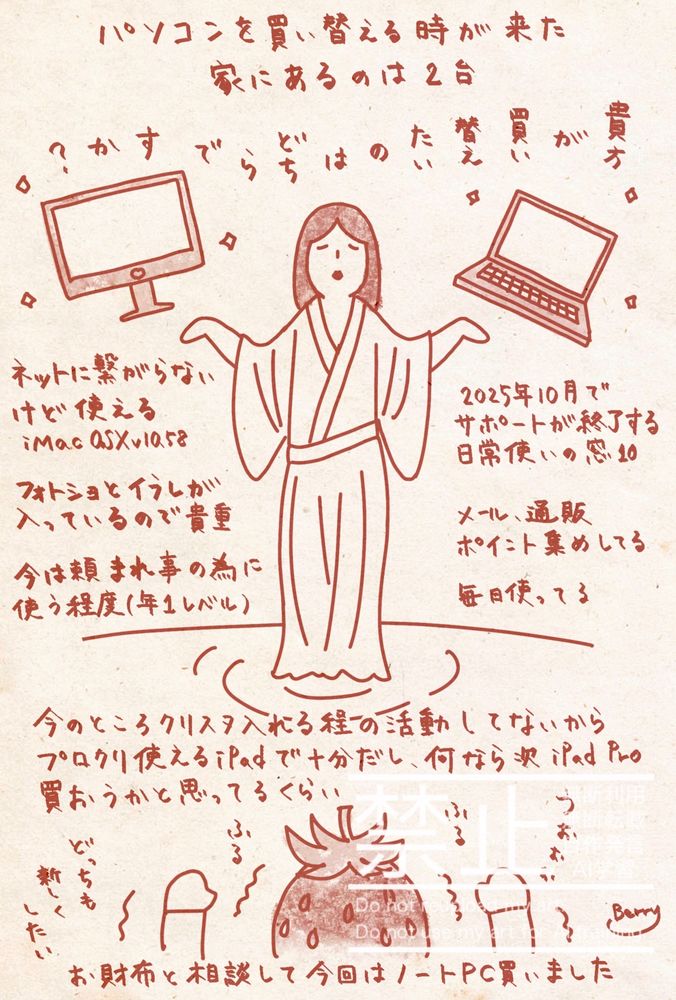 パソコンを買い替える時が来た
家にあるのは2台
貴方が買い替えたいのはどちらですか?
ネットに繋がらない
けど使える
iMac OSXv10.58
フォトショとイラレが
入っているので貴重
今は頼まれ事の為に
使う程度(年1レベル)
2025年10月で
サポートが終了する
日常使いの窓10
メール、通販
ポイント集めしてる
毎日使ってる
今のところクリスタ入れる程の活動してないから
プロクリ使えるiPadで十分だし、何なら次iPad Pro
買おうかと思ってるくらい
つぉぉ
ふる
ふる
どっちも
新しく
したい
禁止
無断利用
AI学習
Do not reupload my art
Do not use my art for AI training
Berry
お財布と相談して今回はノートPC買いました